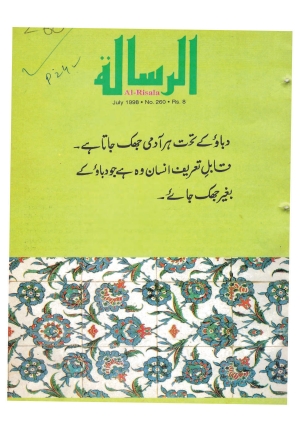 P24
الرسالہ
Al-Risala
July 1998 • No. 260 • Rs. 8
دباؤ کے تحت ہر آدمی جھک جاتا ہے۔
قابلِ تعریف انسان وہ ہے جو دباؤ کے
بغیر جھک جائے۔